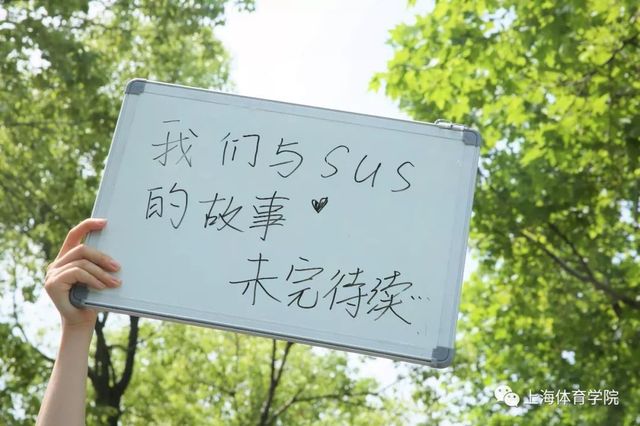 我们与SUS
的故事
未完待续...
上海体育学院